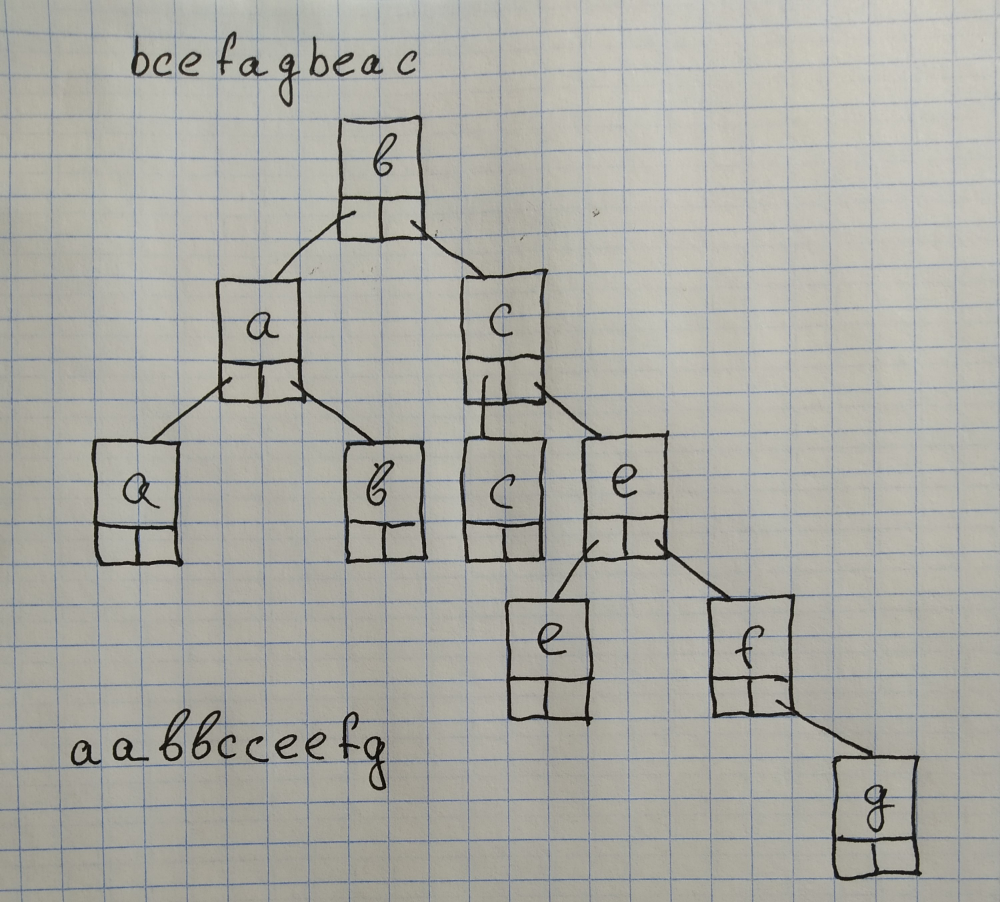 bcefagbeac
b
a c
a b c e
e f
aabbcceefg
g